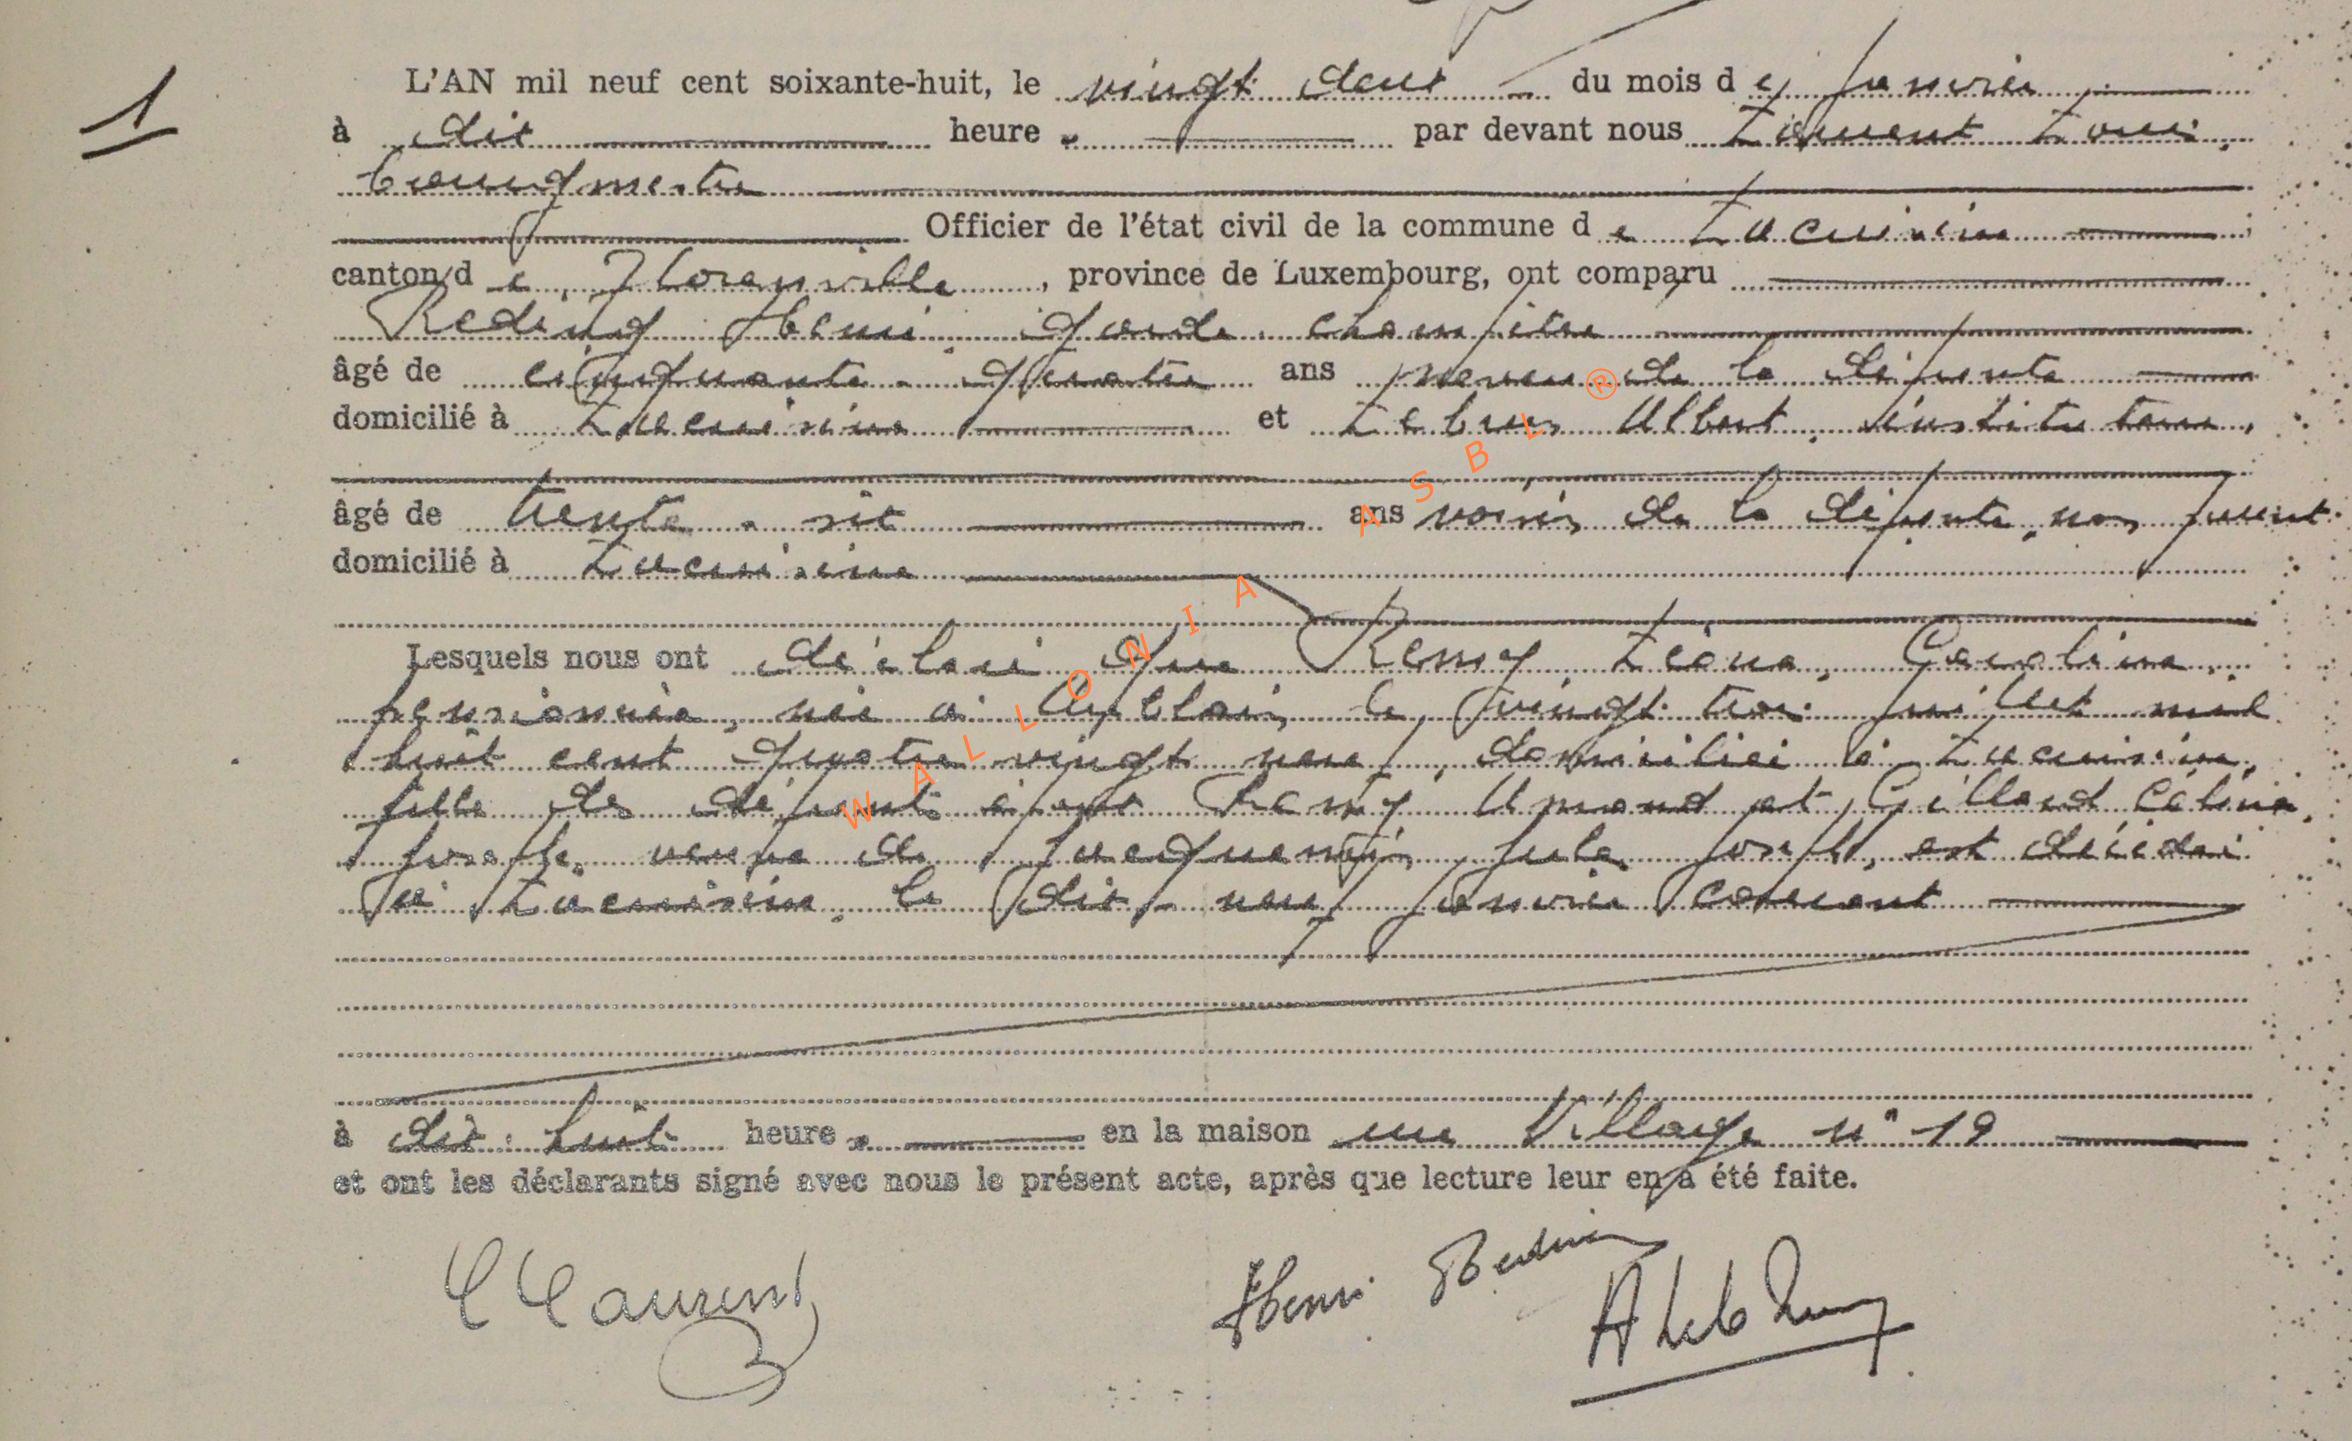 1
L'AN mil neuf cent soixante-huit, le vingt deux du mois de Janvier
à dix heures par devant nous Laurent Louis,
bourgmestre
Officier de l'état civil de la commune de Lacuisine
canton de Florenville, province de Luxembourg, ont comparu
Reding Henri garde champêtre
âgé de cinquante-quatre ans neveu de la défunte
domicilié à Lacuisine et Lebrun Albert, instituteur,
âgé de trente-six ans voisin de la défunte, non parent
domicilié à Lacuisine
Lesquels nous ont déclaré que Remy Léona, Caroline,
pensionnée, née à le vingt trois juillet mil
huit cent quatre vingt neuf, domiciliée à Lacuisine,
fille des défunts époux Remy Armand et Gillard Célina,
Joseph, veuve de Jacquemin, Jules Joseph, est décédée
à Lacuisine, le dix-neuf janvier courant
à dix-huit heures en la maison rue Village n° 19
et ont les déclarants signé avec nous le présent acte, après que lecture leur en a été faite.
L Laurent
Henri Reding
A Lebrun
WALLONIA ASBL ®